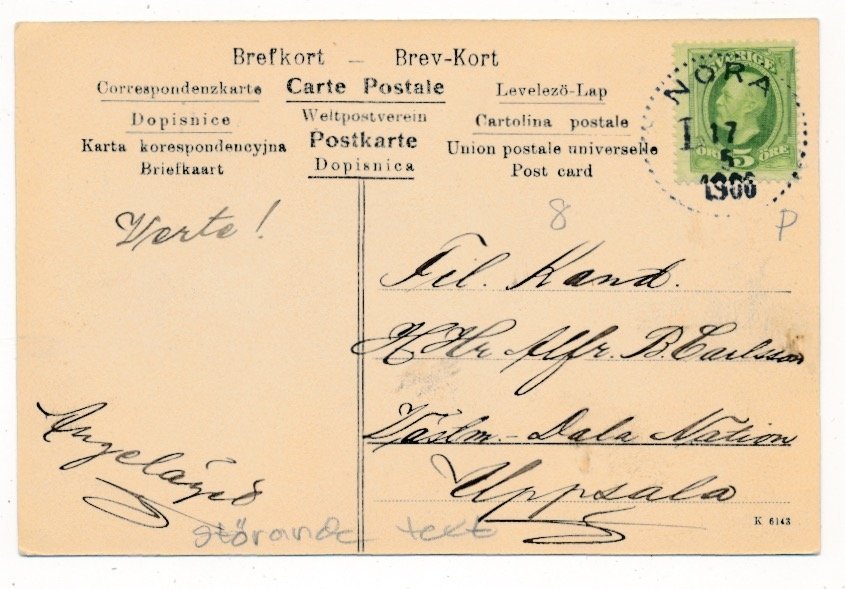 Brefkort – Brev-Kort
Correspondenzkarte Carte Postale Levelezö-Lap
Dopisnice Weltpostverein Cartolina postale
Karta korespondencyjna Postkarte Union postale universelle
Briefkaart Dopisnica Post card
SVERIGE
ÖRE 5 ÖRE
NORA
17
5
1906
8
P
Verte!
Fil. Kand.
H Hr Alfr. B. Carlsson
Västm.-Dala Nation
Uppsala
störande text
K 6143